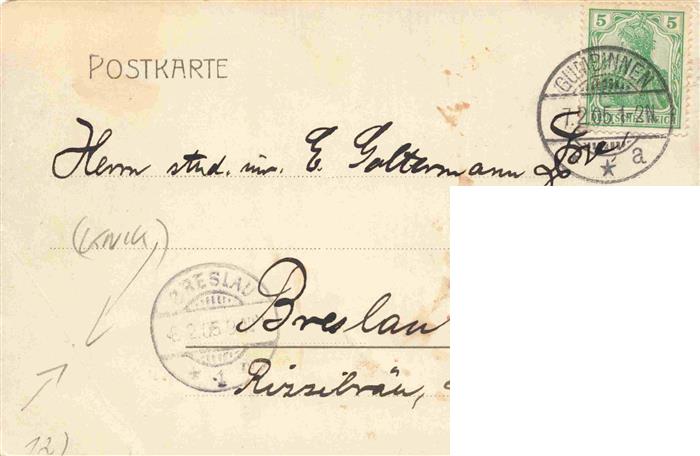 POSTKARTE
5 5
DEUTSCHES REICH
GUMBINNEN
7.2.05.1-2N
* a
Herrn stud. iur. E. Goltermann
(KNICK)
BRESLAU
8.2.05
* 1 *
Breslau
12)